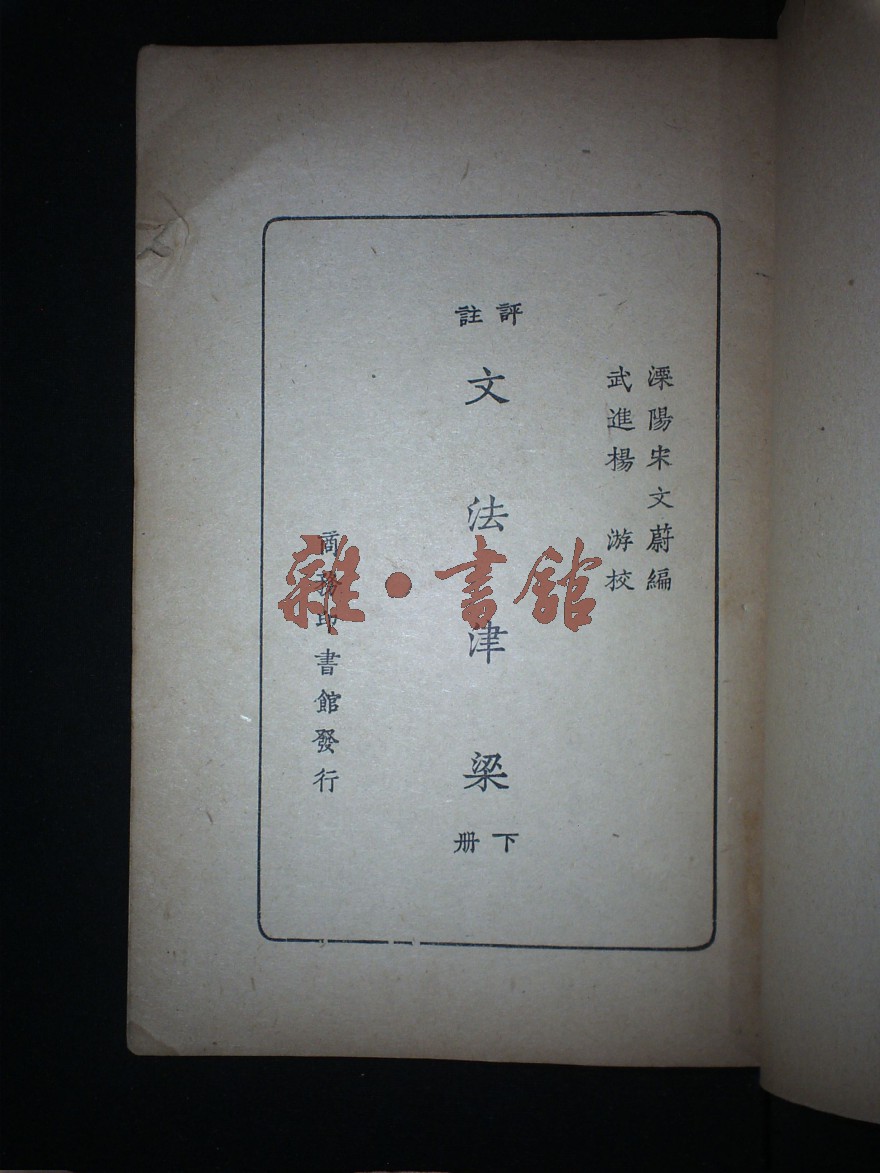 溧陽宋文蔚編
武進楊 游校
評註
文法津梁
下册
商務印書館發行
雜·書館